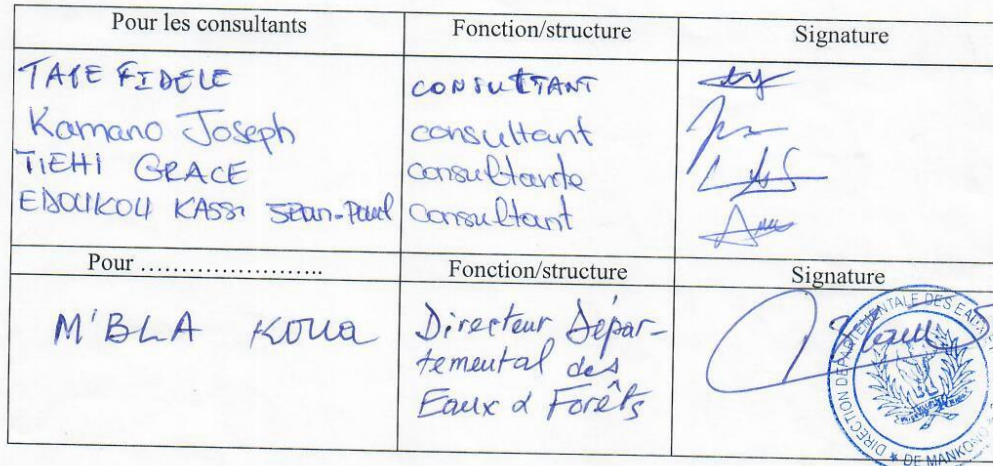 Pour les consultants Fonction/structure Signature
TAPE FIDELE CONSULTANT
Kamano Joseph consultant
TIEHI GRACE consultante
EDOUKOU KASSI Jean-Paul consultant
Pour ........................ Fonction/structure Signature
M'BLA KOUA Directeur Dépar-
temental des
Eaux & Forêts
DIRECTION DEPARTEMENTALE DES EAUX ET
* DE MANKONO *